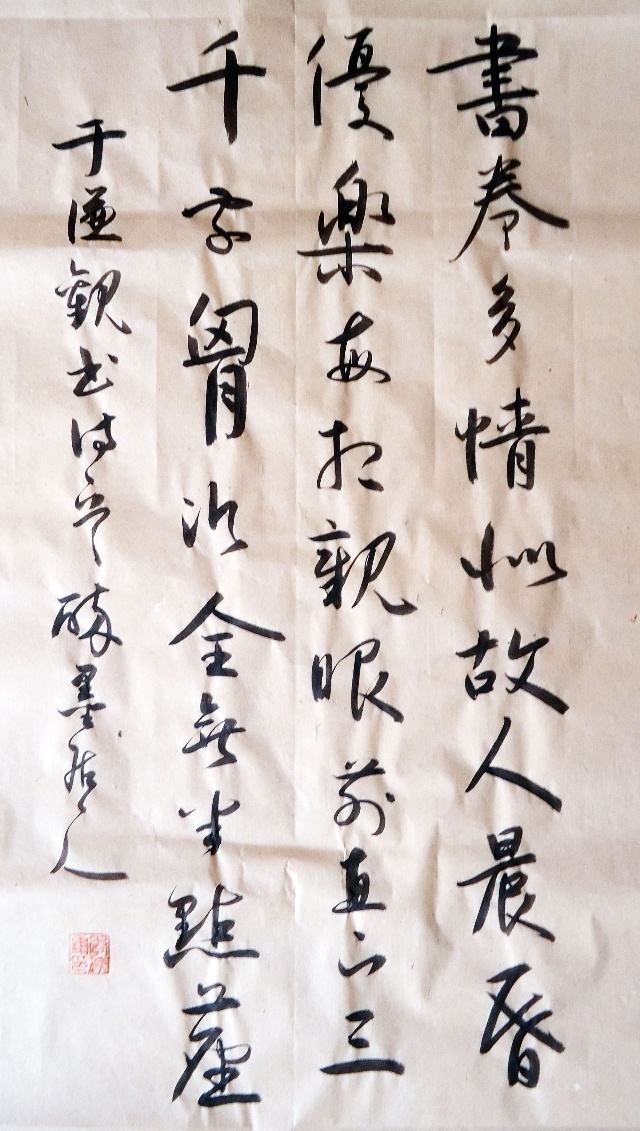 書卷多情似故人晨昏
優樂每相親眼前直下三
千字胷次全無半點塵
于謙觀书诗墨居人